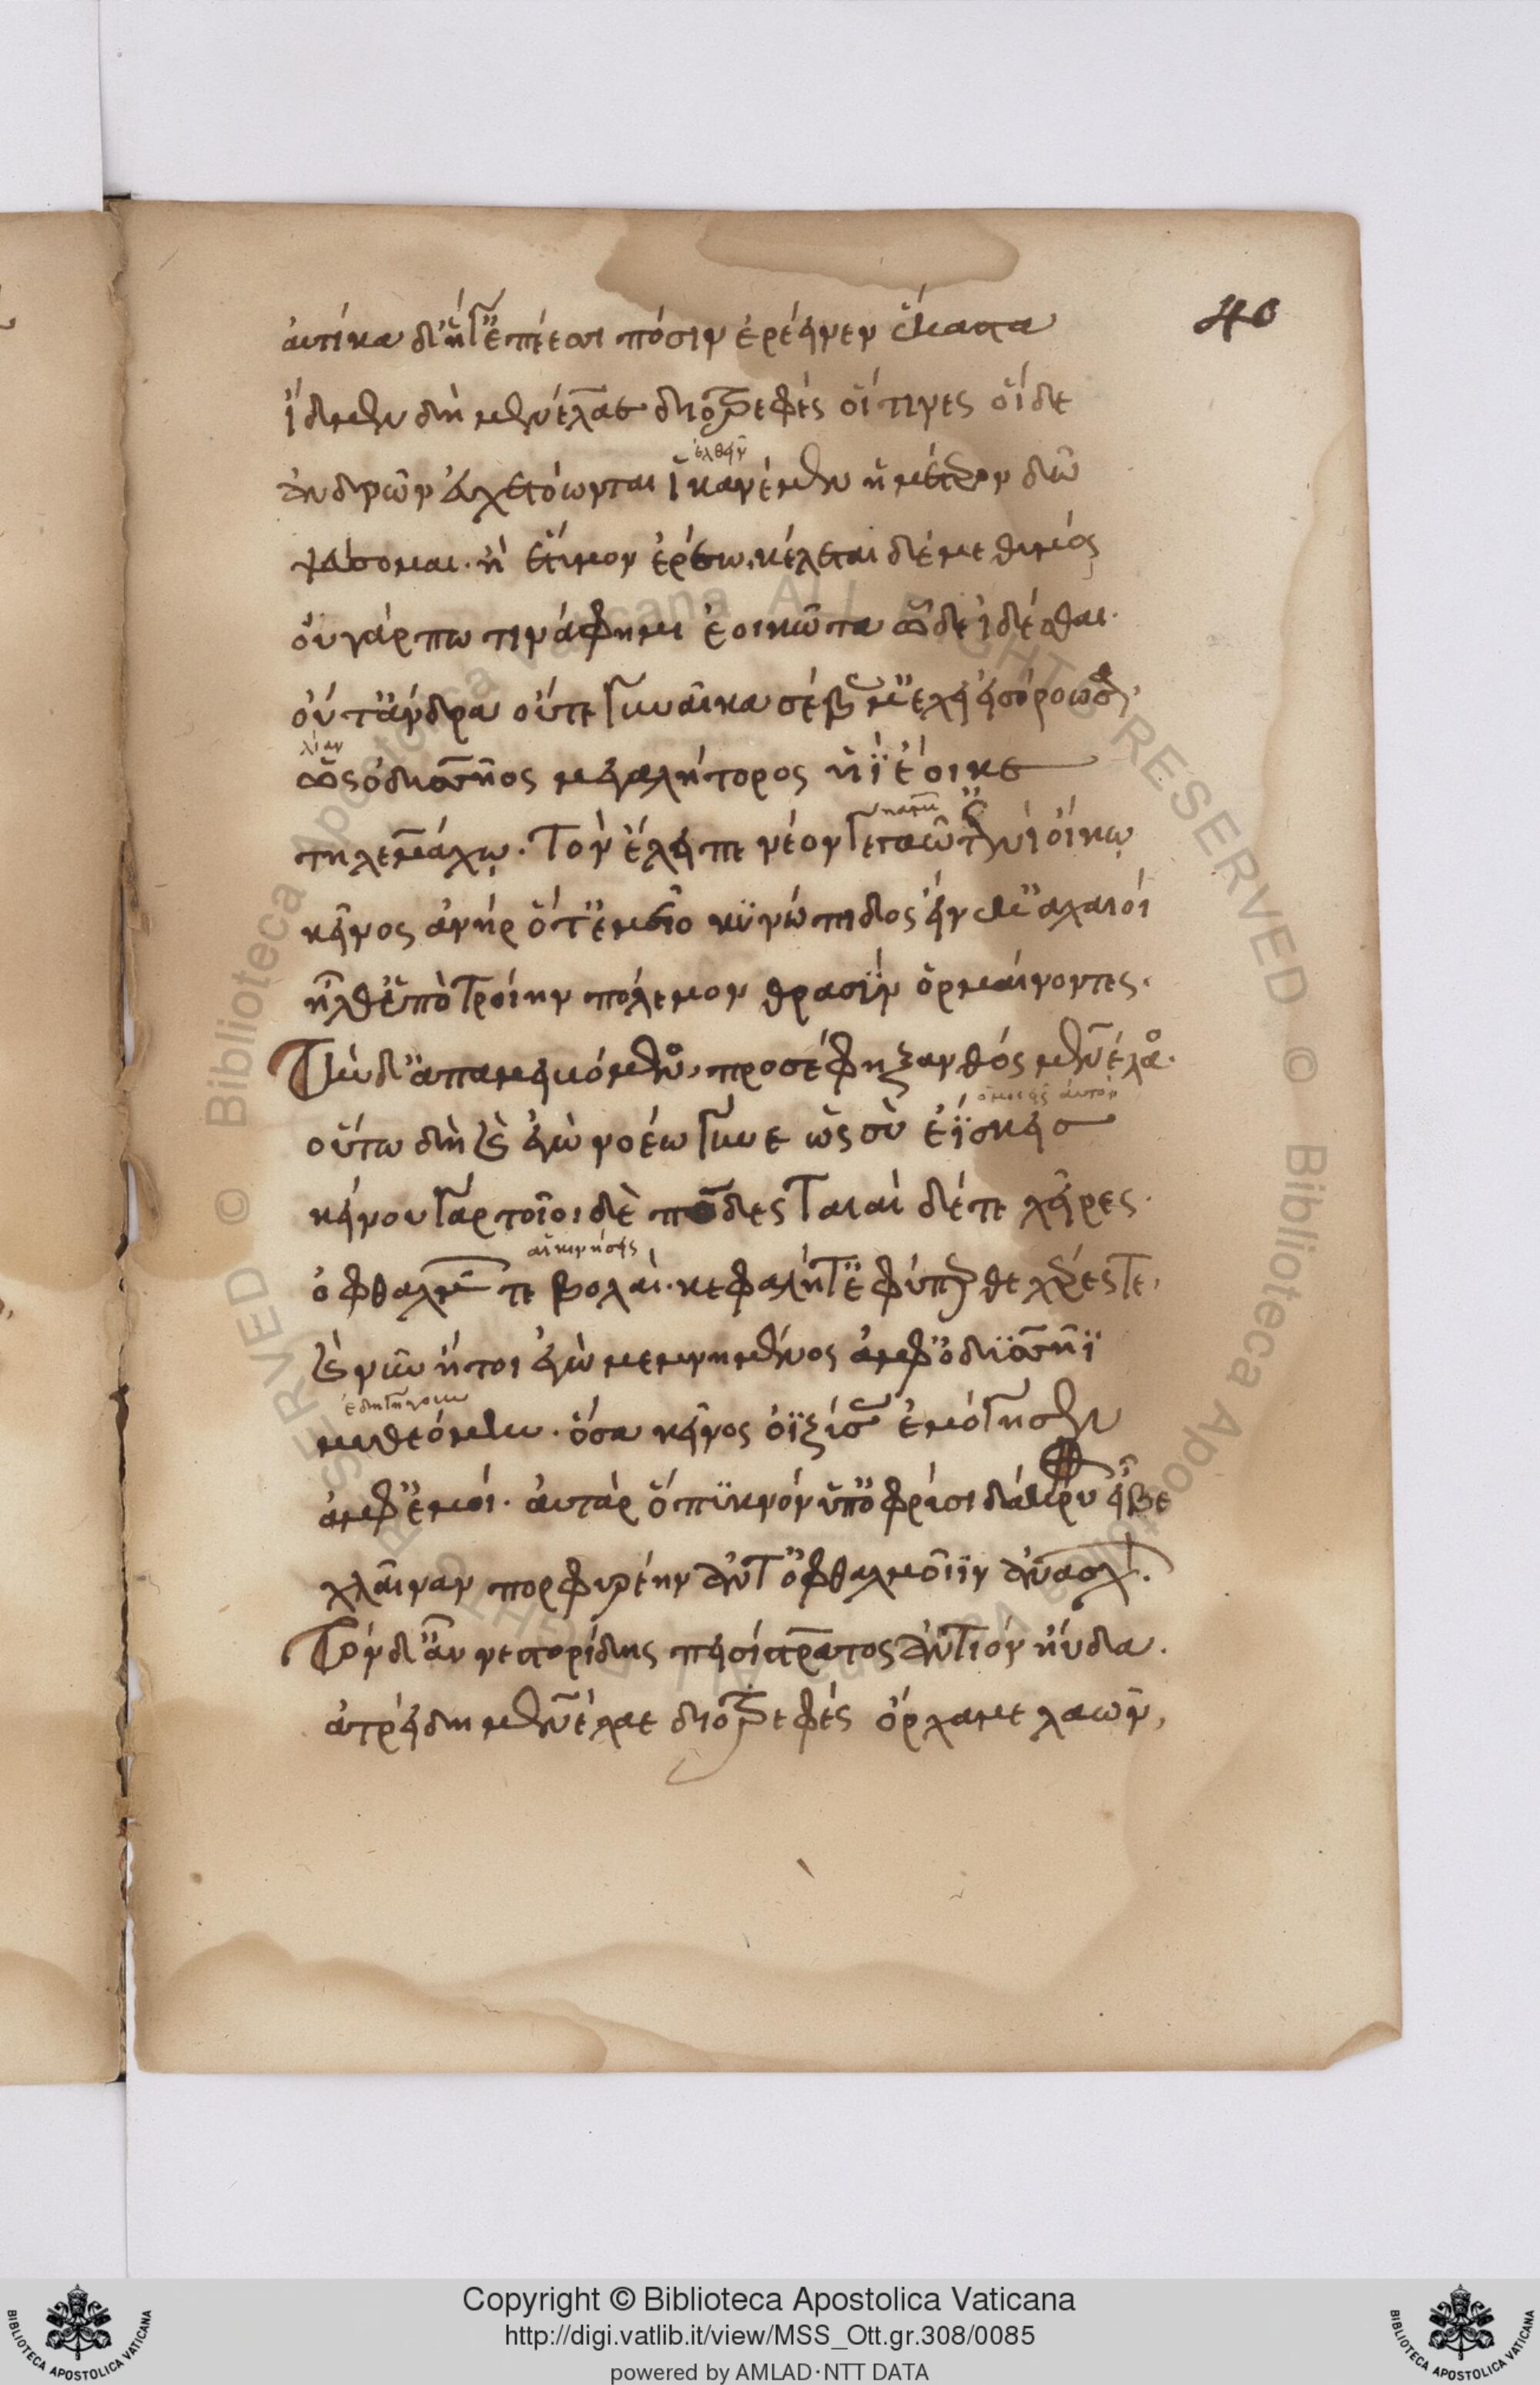 40
αὐτίκα δ' ἥγ' ἐπέεσσι πόσιν ἐρέεινεν ἕκαστα
ἴδμεν δὴ μενέλαε διοτρεφὲς οἵ τινες οἵδε
ἐλθεῖν
ἀνδρῶν εὐχετόωνται ἱκανέμεν ἡμέτερον δῶ
ψεύσομαι. ἢ ἔτυμον ἐρέω. κέλεται δέ με θυμός
οὐ γάρ πω τινά φημι ἐοικότα ὧδε ἰδέσθαι.
οὔτ' ἄνδρα οὔτε γυναῖκα σέβας μ' ἔχει εἰσορόωσαν,
λίαν
ὡς ὀδυσσῆος μεγαλήτορος υἷϊ ἔοικε
τηλεμάχῳ. τὸν ἔλειπε νέον γεγαῶτ' ἐνὶ οἴκῳ
κεῖνος ἀνήρ ὅτ' ἐμεῖο κϋνώπιδος εἵνεκ' ἀχαιοί
ἤλθεθ' ὑπὸ τροίην πόλεμον θρασὺν ὁρμαίνοντες.
Τὴν δ' ἀπαμειβόμενος, προσέφη ξανθὸς μενέλαος.
οὕτω δὴ καὶ ἐγὼ νοέω γύναι ὡς σὺ ἐΐσκεις
κείνου γὰρ τοῖοι δὲ πόδες τοιαὶ δέ τε χεῖρες.
αἱ κινήσεις
ὀφθαλμῶν τε βολαὶ. κεφαλή τ' ἐφύπερθε χαῖται τε,
καὶ νῦν ἤτοι ἐγὼ μεμνημένος ἀμφ' ὀδυσσῆϊ
μυθεόμην. ὅσα κεῖνος ὀϊζύσας ἐμόγησεν
ἀμφ' ἐμοί. αὐτὰρ ὁ πϋκνὸν ὑπ' ὀφρύσι δάκρυ εἶβε
χλαῖναν πορφυρέην ἄντ' ὀφθαλμοῖϊν ἀνασχών.
Τὸν δ' αὖ νεστορίδης πεισίστρατος ἀντίον ηὔδα.
ἀτρείδη μενέλαε διοτρεφὲς ὄρχαμε λαῶν,
Copyright © Biblioteca Apostolica Vaticana
http://digi.vatlib.it/view/MSS_Ott.gr.308/0085
powered by AMLAD·NTT DATA